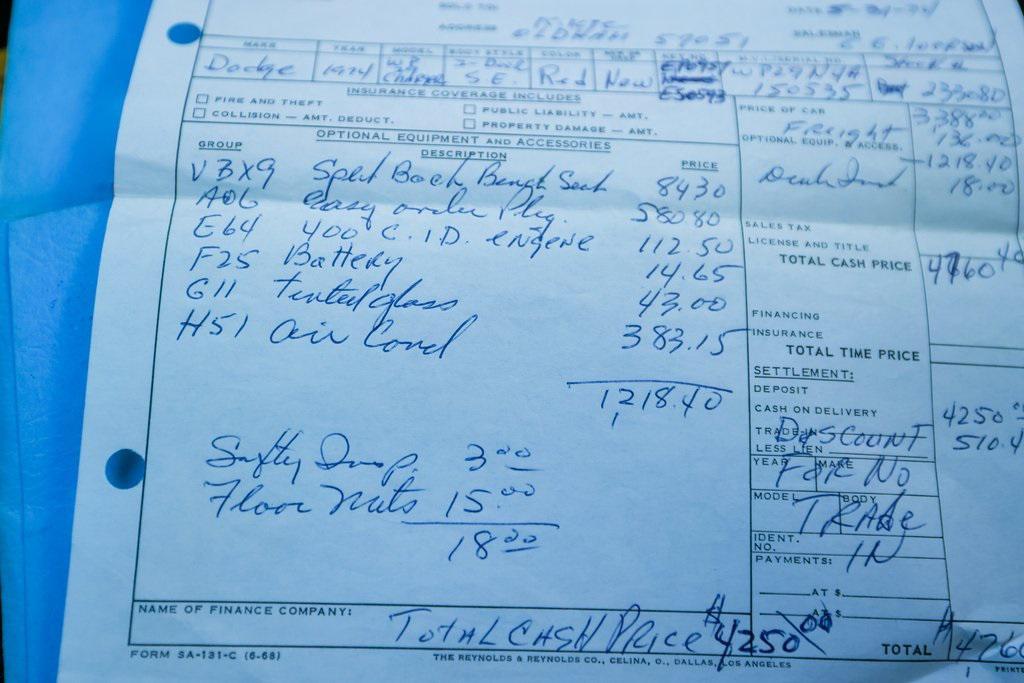 SOLD TO: DATE 5-31-74
ADDRESS OLDHAM 57051 SALESMAN
MAKE YEAR MODEL BODY STYLE COLOR
Dodge 1974 Charger 2-Door S.E. Red New WP29N4A 150535 233080
INSURANCE COVERAGE INCLUDES
FIRE AND THEFT PUBLIC LIABILITY — AMT.
COLLISION — AMT. DEDUCT. PROPERTY DAMAGE — AMT.
OPTIONAL EQUIPMENT AND ACCESSORIES
GROUP DESCRIPTION PRICE
V3X9 Split Back Bench Seat 84.30
A06 easy order Pkg. 580.80
E64 400 C.I.D. engine 112.50
F25 Battery 14.65
G11 tinted glass 43.00
H51 air Cond 383.15
1,218.40
Safty Insp. 3.00
Floor Mats 15.00
18.00
PRICE OF CAR 3,388.00
Freight 136.00
OPTIONAL EQUIP. & ACCESS. 1218.40
18.00
SALES TAX
LICENSE AND TITLE
TOTAL CASH PRICE 4760.40
FINANCING
INSURANCE
TOTAL TIME PRICE
SETTLEMENT:
DEPOSIT
CASH ON DELIVERY 4250
TRADE-IN DISCOUNT 510.4
LESS LIEN
YEAR MAKE FOR NO
MODEL BODY TRADE
IDENT. NO. IN
PAYMENTS:
AT $
AT $
NAME OF FINANCE COMPANY: TOTAL CASH PRICE $4250.00 TOTAL $4,760
FORM SA-131-C (6-68) THE REYNOLDS & REYNOLDS CO., CELINA, O., DALLAS, LOS ANGELES